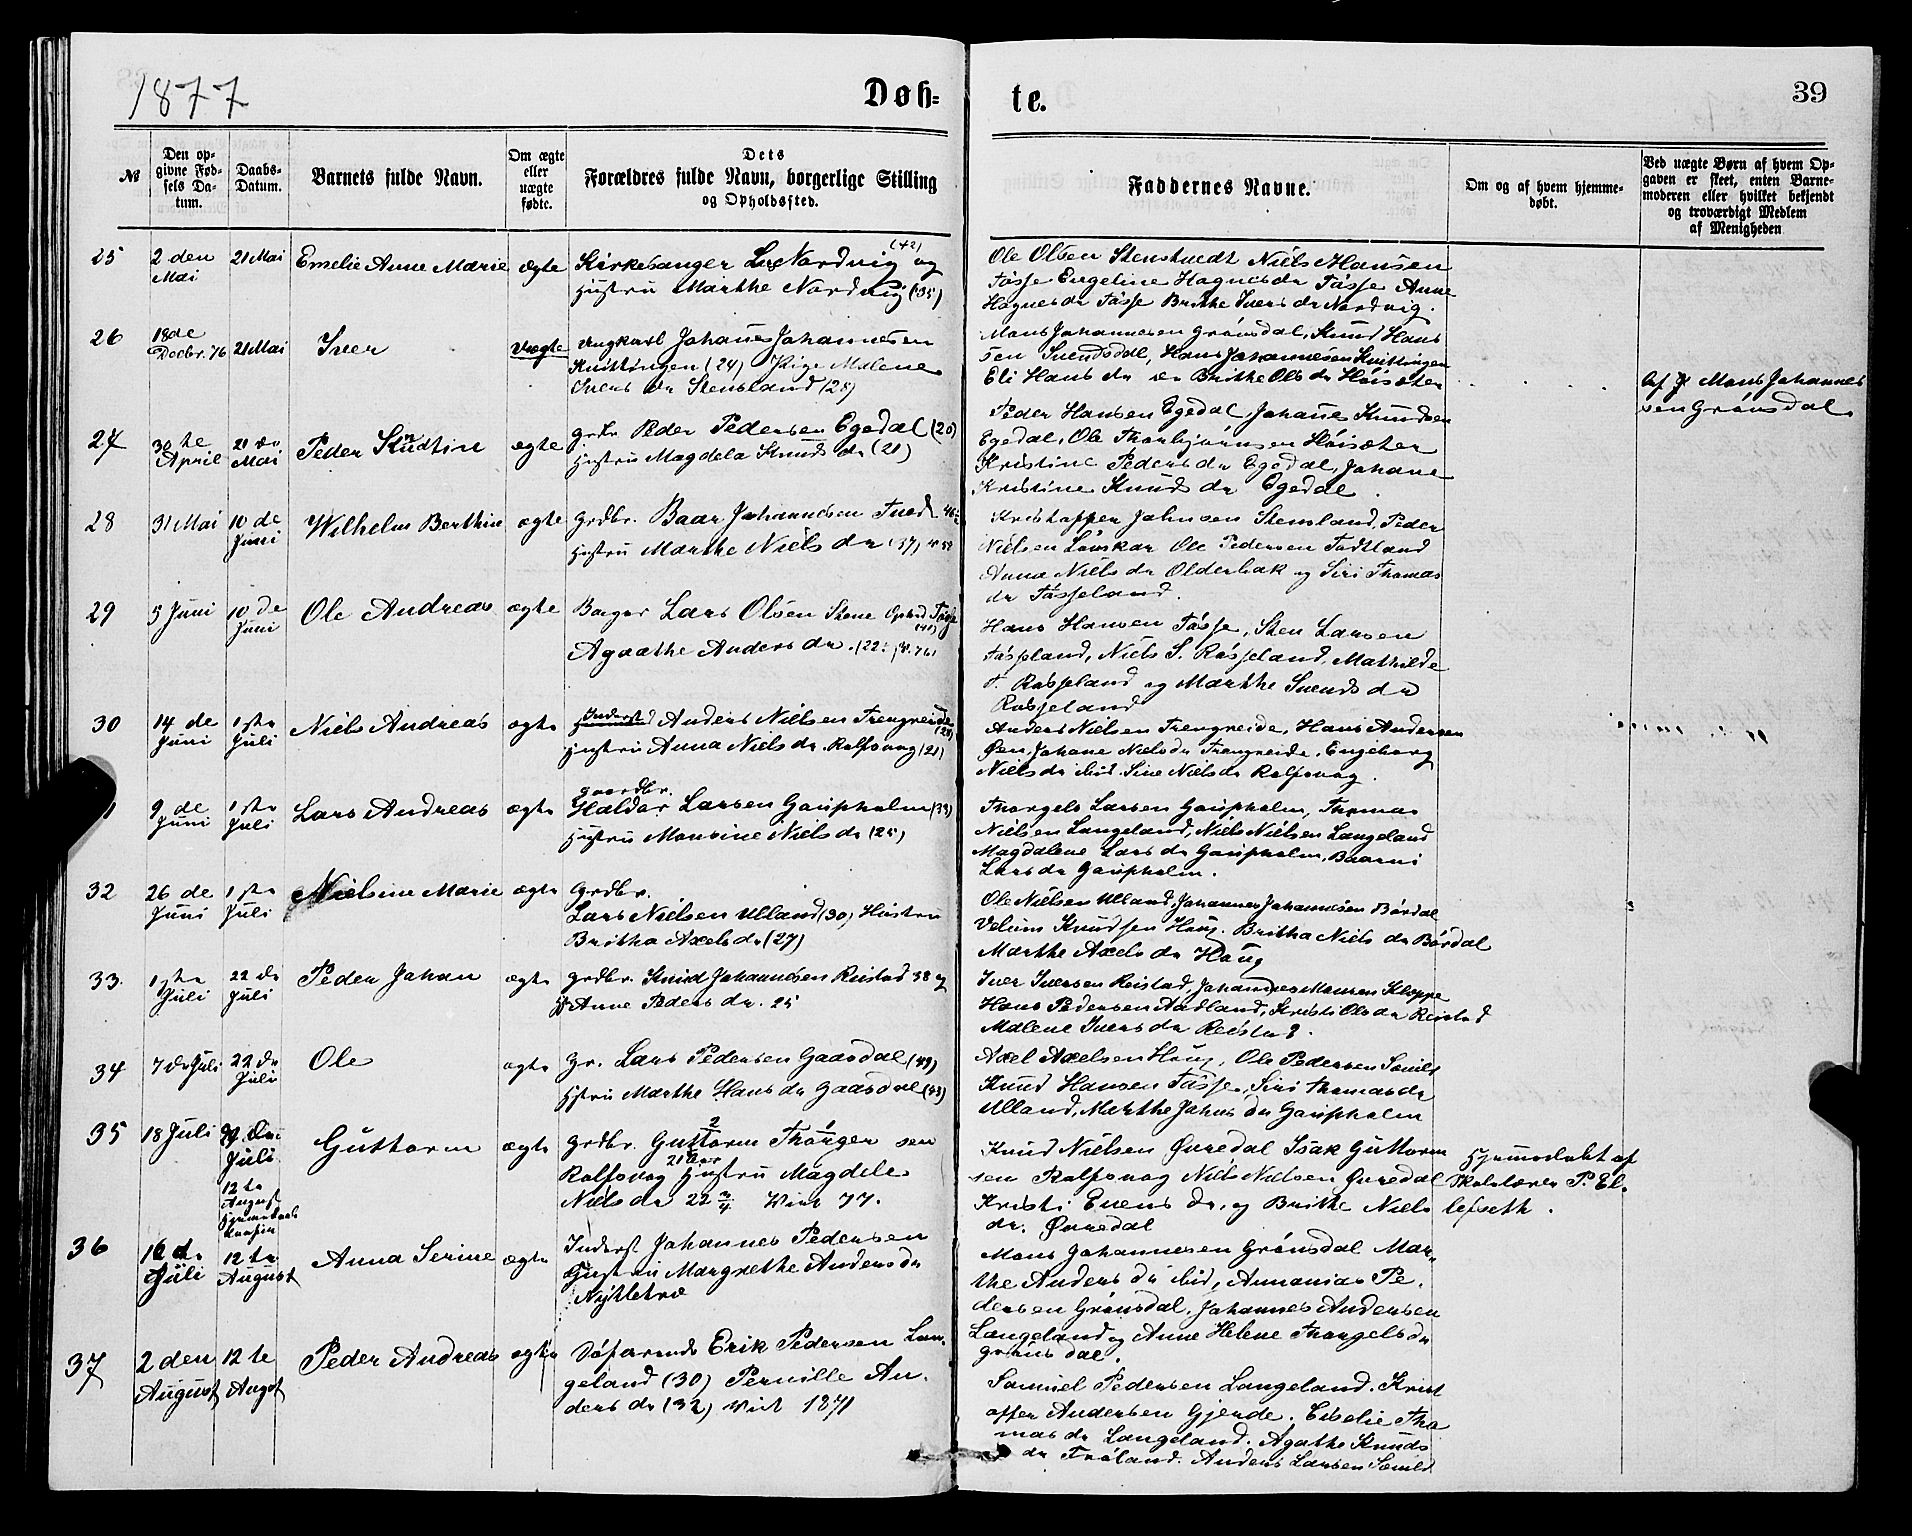 1877
Døb=
te.
39
№
Den op-
givne Fød-
sels Da-
tum.
Daabs-
Datum.
Barnets fulde Navn.
Om ægte
eller
uægte
fødte.
Dets
Forældres fulde Navn, borgerlige Stilling
og Opholdssted.
Faddernes Navne.
Om og af hvem hjemme-
døbt.
Ved uægte Børn af hvem Op-
gaven er skeet, enten Barne-
moderen eller hvilket bekjendt
og troværdigt Medlem
af Menigheden
25
2 den
Mai
21 Mai
Emelie Anne Marie
ægte
(42)
Kirkesanger L. Nordvig og
Hustru Marthe Nordvig (35)
Ole Olsen Stenstvedt Niels Hansen
Tøsse Engeline Hagnesdr Tøsse Anne
Hagnesdr Tøsse Brithe Ivers dr Nordvig.
26
18de
Decbr. 76
21 Mai
Iver
uægte
Ungkarl Johanes Johannesen
Knittingen (24) Pige Malene
Ivers dr Stensland (28)
Mons Johannesen Grønsdal, Knud Hans
sen Svendsdal, Hans Johannesen Knittingen
Eli Hans dr og Brithe Ols dr Høisæter
Af Mons Johannes
sen Grønsdal
27
30 te
April
21 de
Mai
Peder Knudtin
ægte
grdbr Peder Pedersen Egedal (20)
Hustru Magdela Knuds dr (21)
Peder Hansen Egedal, Johane Knudsen
Egedal, Ole Thorbjørnsen Høisæter
Kristine Peders dr Egedal, Johane
Kristine Knuds dr Egedal.
28
31 Mai
10 de
Juni
Wilhelm Berthin
ægte
Grdbr. Baar Johannesen Tued
Hustru Marthe Niels dr (37)
Kristoffer Johnsen Stensland, Peder
Nielsen Lønskar Ole Pedersen Tadtland
Anna Niels dr Olderbak og Siri Thomas
dr Tøsseland.
29
5 Juni
10 de
Juni
Ole Andreas
ægte
Borger Lars Olsen Stene Ophold Tøsse
Agaathe Anders dr. (22)
Hans Hansen Tøsse, Sten Larsen
Tøsseland, Niels S. Røsseland, Mathilde
T. Røsseland og Marthe Svends dr
Røsseland
30
14 de
Juni
1 ste
Juli
Niels Andreas
ægte
Inderst Anders Nielsen Trengreide
(28)
Hustru Anna Niels dr. Rolfsvag (21)
Anders Nielsen Trengreide, Hans Andersen
Øen, Johane Nielsdr Trengreide, Engeborg
Niels dr ibid. Sine Niels dr Rolfsvag.
1
9 de
Juni
1 ste
Juli
Lars Andreas
ægte
gaardbr.
Haldor Larsen Gaupholm (33)
Hustru Monsine Niels dr (25)
Thorgels Larsen Gaupholm, Thomas
Nielsen Langeland, Niels Nielsen Langeland
Magdalene Lars dr Gaupholm, Baarni
Lars dr Gaupholm.
32
26 de
Juni
1 ste
Juli
Nielsine Marie
ægte
Grdbr.
Lars Nielsen Ulland (30) Hustru
Britha Axels dr (27)
Ole Nielsen Ulland, Johannes Johannesen Børdal
Velum Knudsen Haug. Britha Niels dr Børdal
Marthe Axels dr Haug
33.
1 ste
Juli
22 de
Juli
Peder Johan
ægte
grdbr. Knud Johannesen Reistad 38 og
H Anne Peders dr. 25
Iver Iversen Reistad, Johannes Monsen Kleppe
Hans Pedersen Aadland, Kristi Ols dr Reistad
Malene Ivers dr Reistad.
34
7 de Juli
22 de
Juli
Ole
ægte
Gr. Lars Pedersen Gaasdal (49)
Hstru Marthe Hans dr Gaasdal (43)
Axel Axelsen Haug, Ole Pedersen Samdl
Knud Hansen Tøsse, Siri Thomasdr
Ulland, Marthe Johns dr Gaupholm
35
18 Juli
Juli
12 te
August
Guttorm
ægte
2 1
Grdbr. Guttorm Thorger sen
21 Aar
Rolfsvog Hustru Magdele
Niels dr 22 3/4 Viet 77.
Knud Nielsen Øvredal Isak Guttorm
sen Rolfsvog Niels Nielsen Øvredal
Kristi Evens dr, og Brithe Niels
dr. Øvredal
Hjemmedøbt af
Skolelærer P. El-
lefseth.
36
16 de
Juli
12 te
August
Anna Serine
ægte
Inderst Johannes Pedersen
Hustru Margrethe Anders dr
Nyttetræ
Mons Johannesen Grønsdal Mar-
the Anders dr ibid, Annanias Pe-
dersen Grønsdal, Johannes Andersen
Langeland og Anne Helene Thorgels dr
grønsdal.
37
2 den
August
12 te
Augst
Peder Andreas
ægte
Søfarende Erik Pedersen Lan-
geland (30) Pernille An-
ders dr (32) Viet 1871
Samuel Pedersen Langeland. Krist
offer Andersen Gjerde. Eiselie Tho
mas dr Langeland. Agathe Knuds
dr Frøland. Anders Larsen Samdl